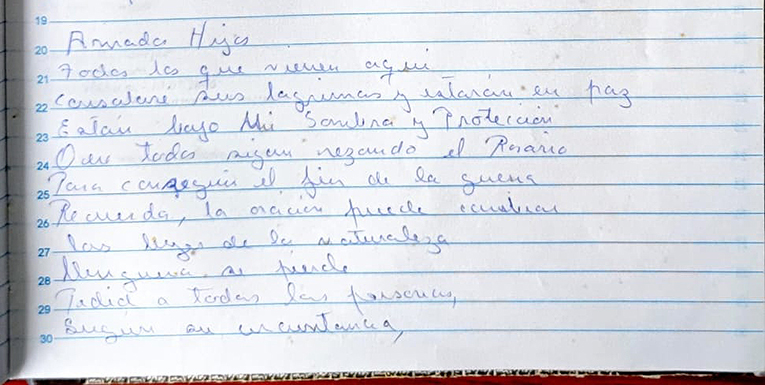 19
20 Amada Hijos
21 Todos los que vienen aquí
22 consolaré sus lagrimas y estarán en paz
23 Están bajo Mi Sombra y Protección
24 Que todos sigan rezando el Rosario
25 Para conseguir el fin de la guerra
26 Recuerda, la oración puede cambiar
27 las leyes de la naturaleza
28 Ninguna se pierde
29 Pedid a todas las personas,
30 Según su circunstancia,